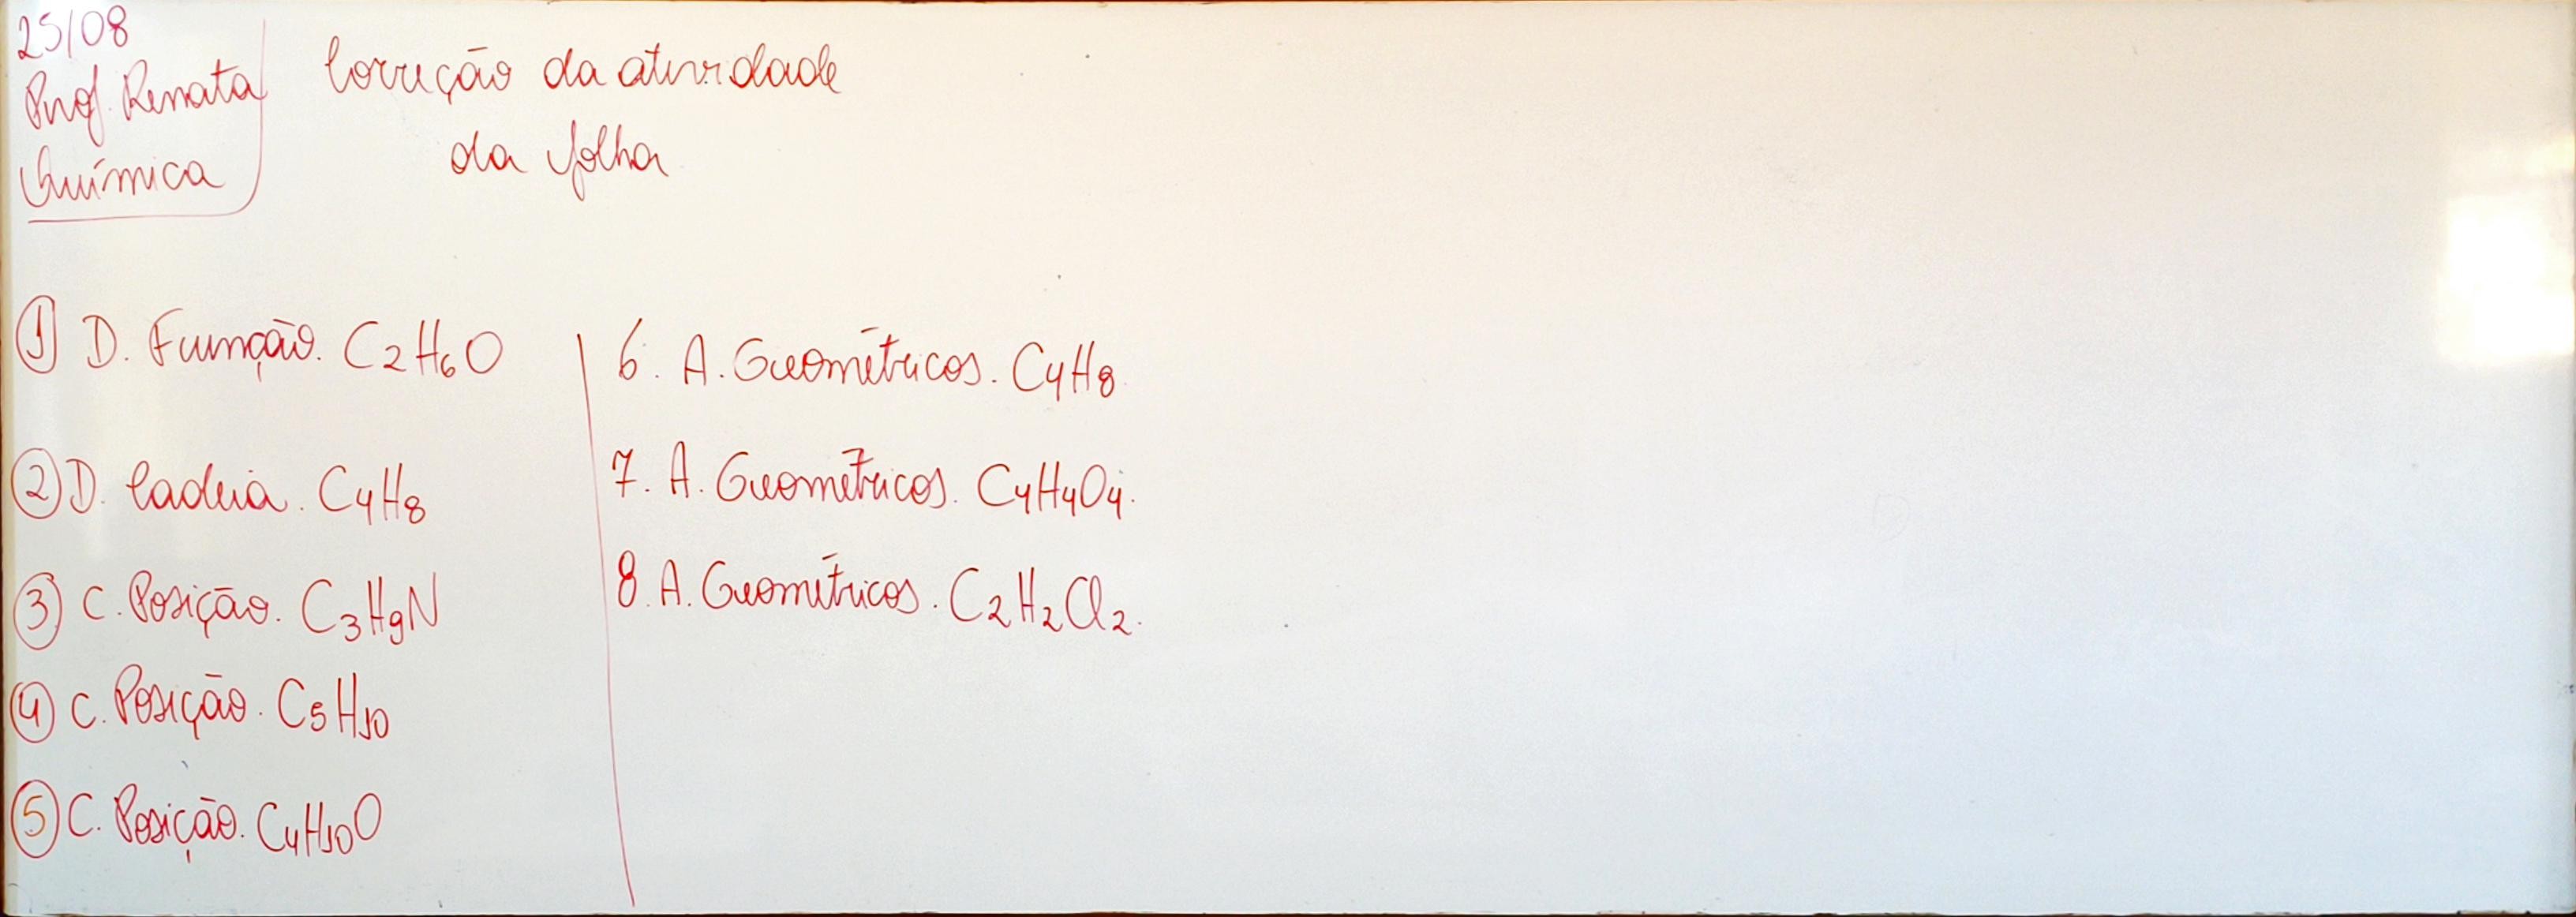 25/08
Prof. Renata
Química
Correção da atividade
da folha
1 D. Função. C2H6O
2 D. Cadeia. C4H8
3 C. Posição. C3H9N
4 C. Posição. C5H10
5 C. Posição. C4H10O
6. A. Geométricos. C4H8.
7. A. Geométricos. C4H4O4.
8. A. Geométricos. C2H2Cl2.